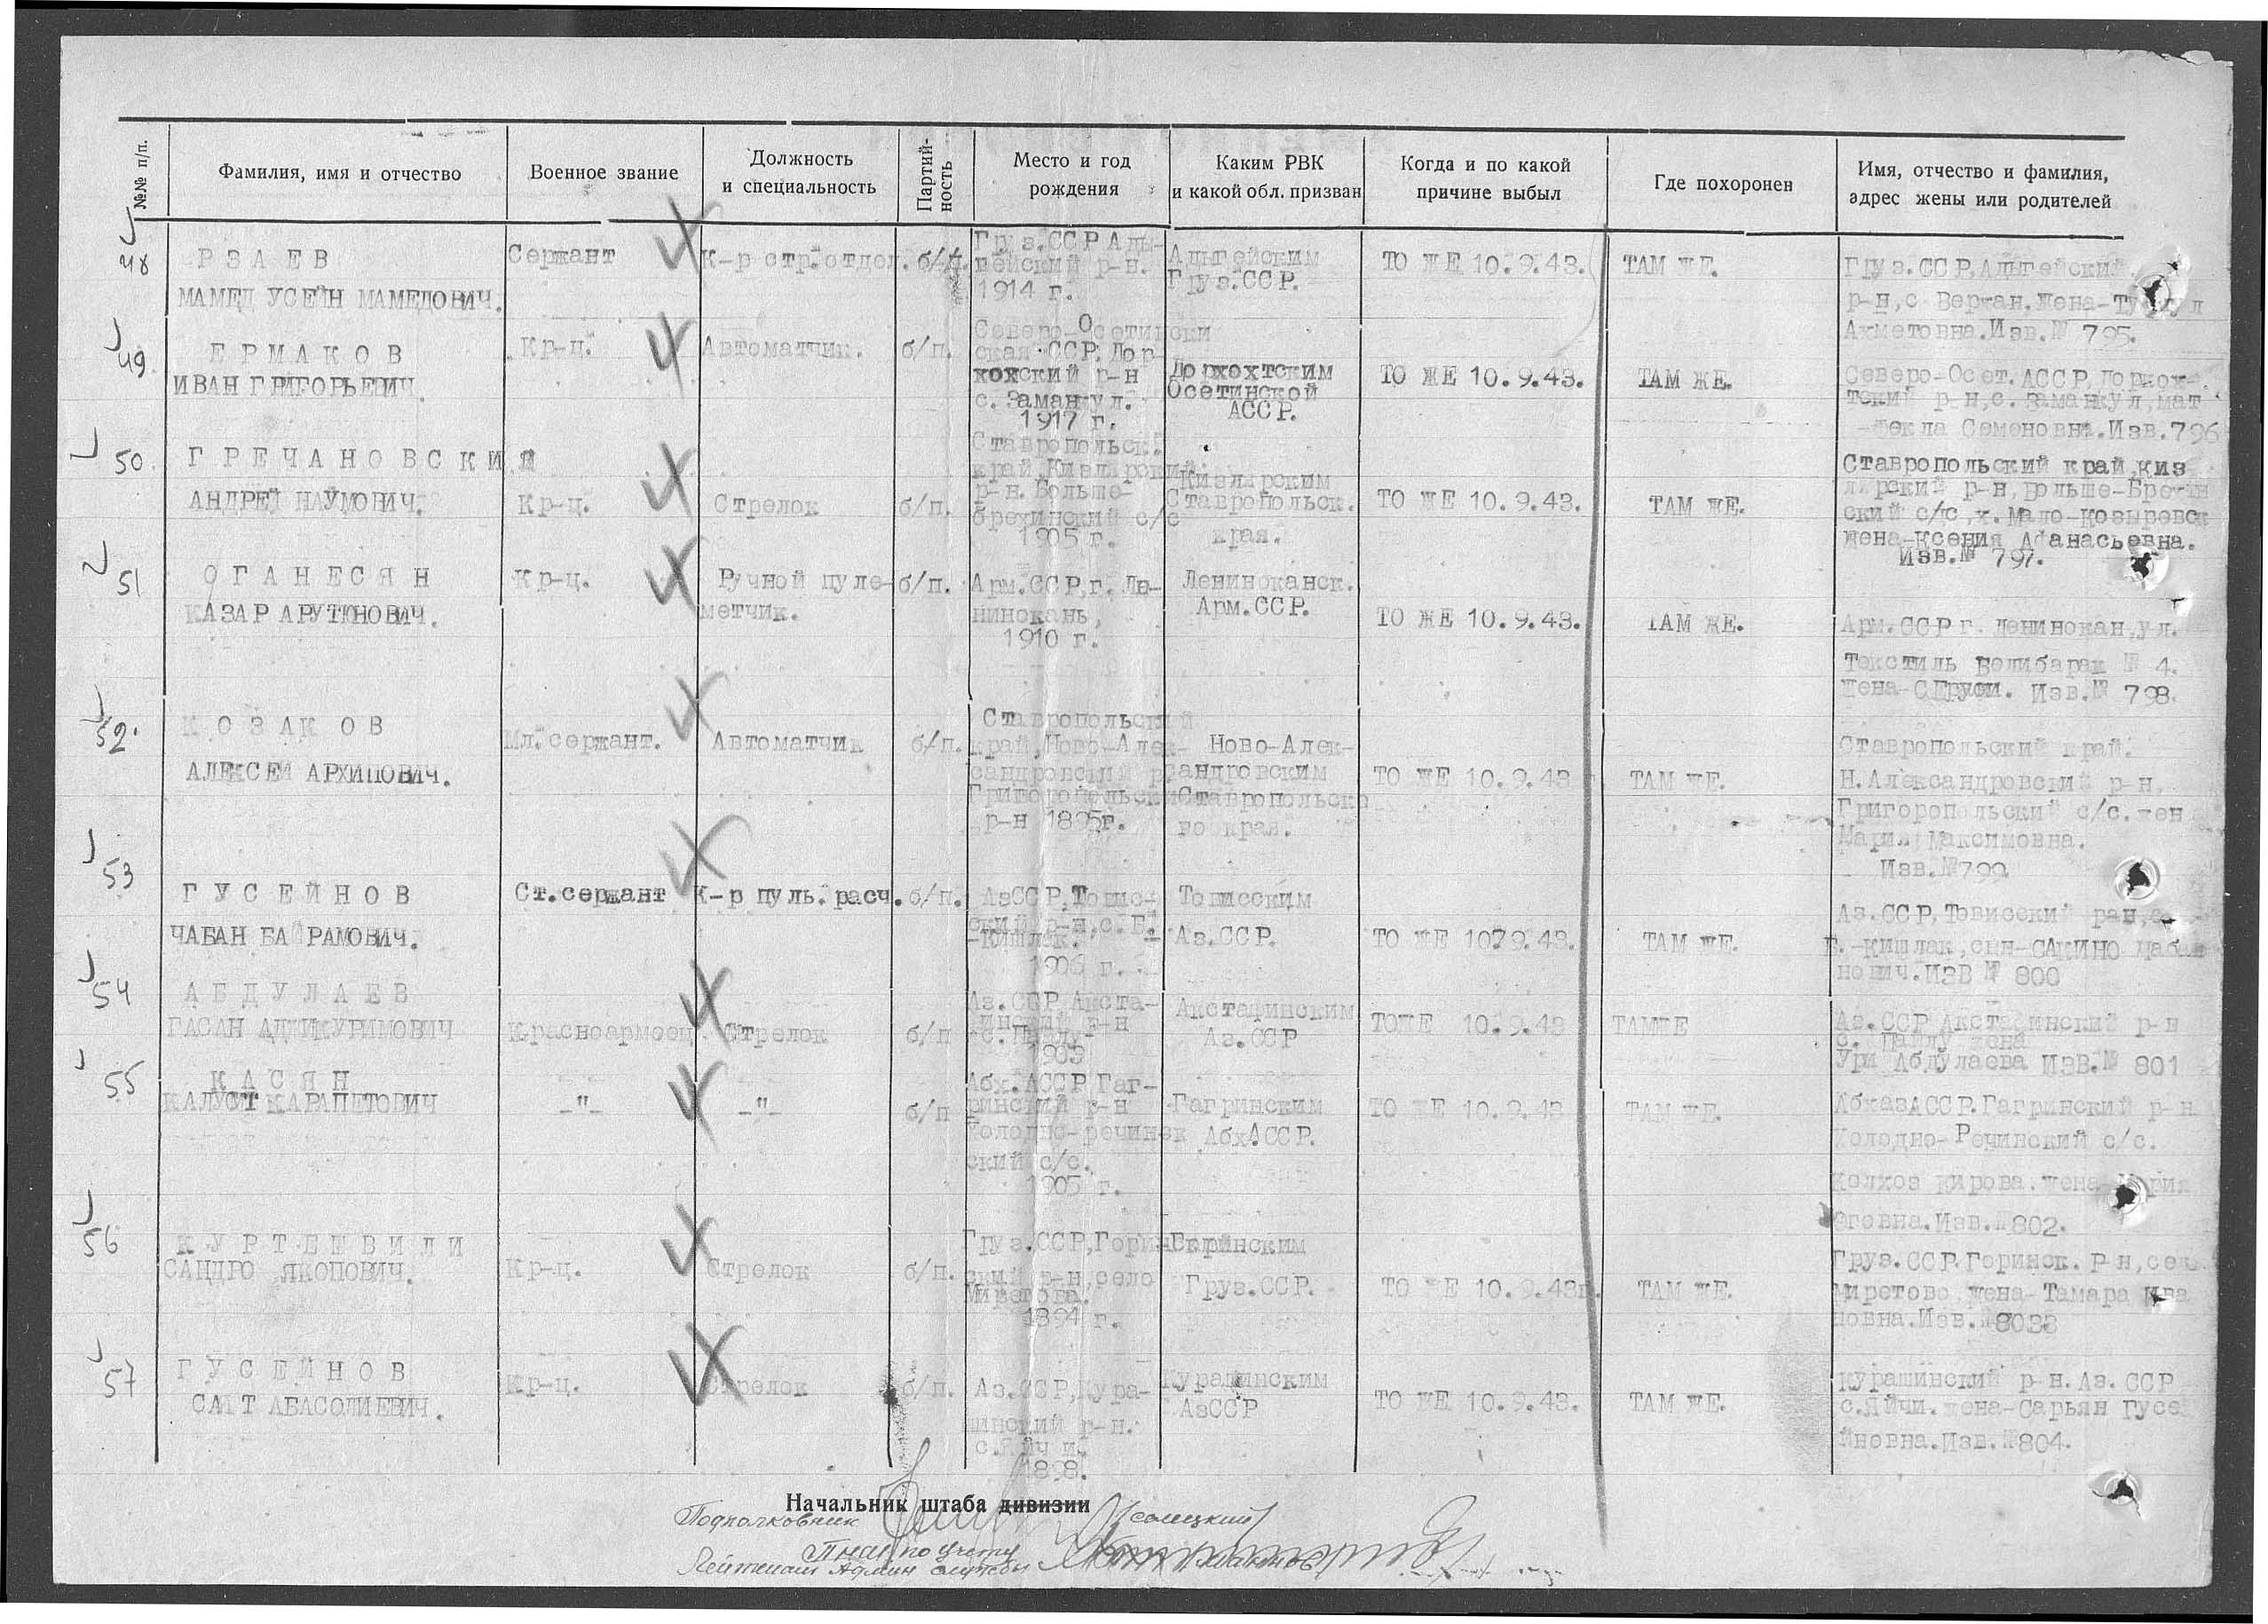 №№ п/п.
Фамилия, имя и отчество
Военное звание
Должность
и специальность
Партий-
ность
Место и год
рождения
Каким РВК
и какой обл. призван
Когда и по какой
причине выбыл
Где похоронен
Имя, отчество и фамилия,
адрес жены или родителей
48
РЗАЕВ
МАМЕД УСЕЙН МАМЕДОВИЧ.
Сержант
К-р стр. отдел.
б/п.
Груз.ССР Ады-
гейский р-н.
1914 г.
Адыгейским
Груз.ССР.
ТО ЖЕ 10.9.43.
ТАМ ЖЕ.
Груз.ССР, Адыгейский
р-н, с Верхан. Жена-
Ахметовна. Изв.№ 795.
49
ЕРМАКОВ
ИВАН ГРИГОРЬЕВИЧ.
Кр-ц.
Автоматчик.
б/п.
Северо-Осетински
ская ССР. Дор-
кохский р-н
с. Заманкул.
1917 г.
Дорхохтским
Осетинской
АССР.
ТО ЖЕ 10.9.43.
ТАМ ЖЕ.
Северо-Осет. АССР, Доркох-
тский р-н, с. Заманкул, мат
Фекла Семеновна. Изв. 796
50
ГРЕЧАНОВСКИЙ
АНДРЕЙ НАУМОВИЧ.
Кр-ц.
Стрелок
б/п.
Ставропольск.
край, Кизлярский
р-н. Больше-
брехинский с/с
1905 г.
Кизлярским
Ставропольск.
края.
ТО ЖЕ 10.9.43.
ТАМ ЖЕ.
Ставропольский край, киз
лярский р-н, Больше-Брехин
ский с/с, х. Мало-Козыревск
жена-Ксения Афанасьевна.
Изв.№ 797.
51
ОГАНЕСЯН
КАЗАР АРУТЮНОВИЧ.
Кр-ц.
Ручной пуле-
метчик.
б/п.
Арм.ССР, г. Ле-
нинокань,
1910 г.
Лениноканск.
Арм.ССР.
ТО ЖЕ 10.9.43.
ТАМ ЖЕ.
Арм.ССР г. Ленинокан, ул.
Текстиль Велибарак № 4.
Жена- Изв.№ 798.
52.
КОЗАКОВ
АЛЕКСЕЙ АРХИПОВИЧ.
Мл.сержант.
Автоматчик
б/п.
Ставропольский
край, Ново-Алек-
сандровский р
Григоропольский
р-н 1895г.
Ново-Алек-
сандровским
Ставропольско
го края.
ТО ЖЕ 10.9.43
ТАМ ЖЕ.
Ставропольский край.
Н.Александровский р-н,
Григоропольский с/с. жен
Мария Максимовна.
Изв.№799
53
ГУСЕЙНОВ
ЧАБАН БАЙРАМОВИЧ.
Ст.сержант
К-р пуль. расч.
б/п.
АзССР, Товис-
ский р-н, с. Б.
-Кишлак.
1906 г.
Товисским
Аз.ССР.
ТО ЖЕ 10.9.43.
ТАМ ЖЕ.
Аз.ССР, Товисский ран, с
Б.-Кишлак, сын-САКИНО Чабан
нович. ИЗВ № 800
54
АБДУЛАЕВ
ГАСАН АДЖИКУРИМОВИЧ
Красноармеец
Стрелок
б/п
Аз.ССР Акста-
финский р-н
с. Пайлу
1905
Акстафинским
Аз.ССР
ТОЖЕ 10.9.43
ТАМЖЕ
Аз.ССР Акстафинский р-н
с. Пайлу жена
Ури Абдулаева ИЗВ.№ 801
55
КАСЯН
КАЛУСТ КАРАПЕТОВИЧ
-"-
-"-
б/п
Абх.АССР Гаг-
ринский р-н
Холодно-речинск
ский с/с.
1905 г.
Гагринским
АбхАССР.
ТО ЖЕ 10.9.43
ТАМ ЖЕ.
АбхазАССР. Гагринский р-н
Холодно-Речинский с/с.
колхоз Кирова. Жена-Мария
Оговна. Изв.№802.
56
КУРТЕШВИЛИ
САНДРО ЯКОПОВИЧ.
Кр-ц.
Стрелок
б/п.
Груз.ССР, Горин-
ский р-н, село
Миретова.
1894 г.
Горинским
Груз.ССР.
ТО ЖЕ 10.9.43г.
ТАМ ЖЕ.
Груз.ССР. Горинск. Р-н, село
Миретово, жена-Тамара Ива
новна. Изв.№803
57
ГУСЕЙНОВ
САИТ АБАСОЛИЕВИЧ.
Кр-ц.
Стрелок
б/п.
Аз.ССР, Кура-
шинский р-н.
с.Яйчи.
1898.
Курашинским
АзССР
ТО ЖЕ 10.9.43.
ТАМ ЖЕ.
Курашинский р-н. Аз. ССР
с.Яйчи. жена-Сарьян Гусе
йновна. Изв.№804.
Начальник штаба дивизии
Подполковник
Лейтенант Админ службы